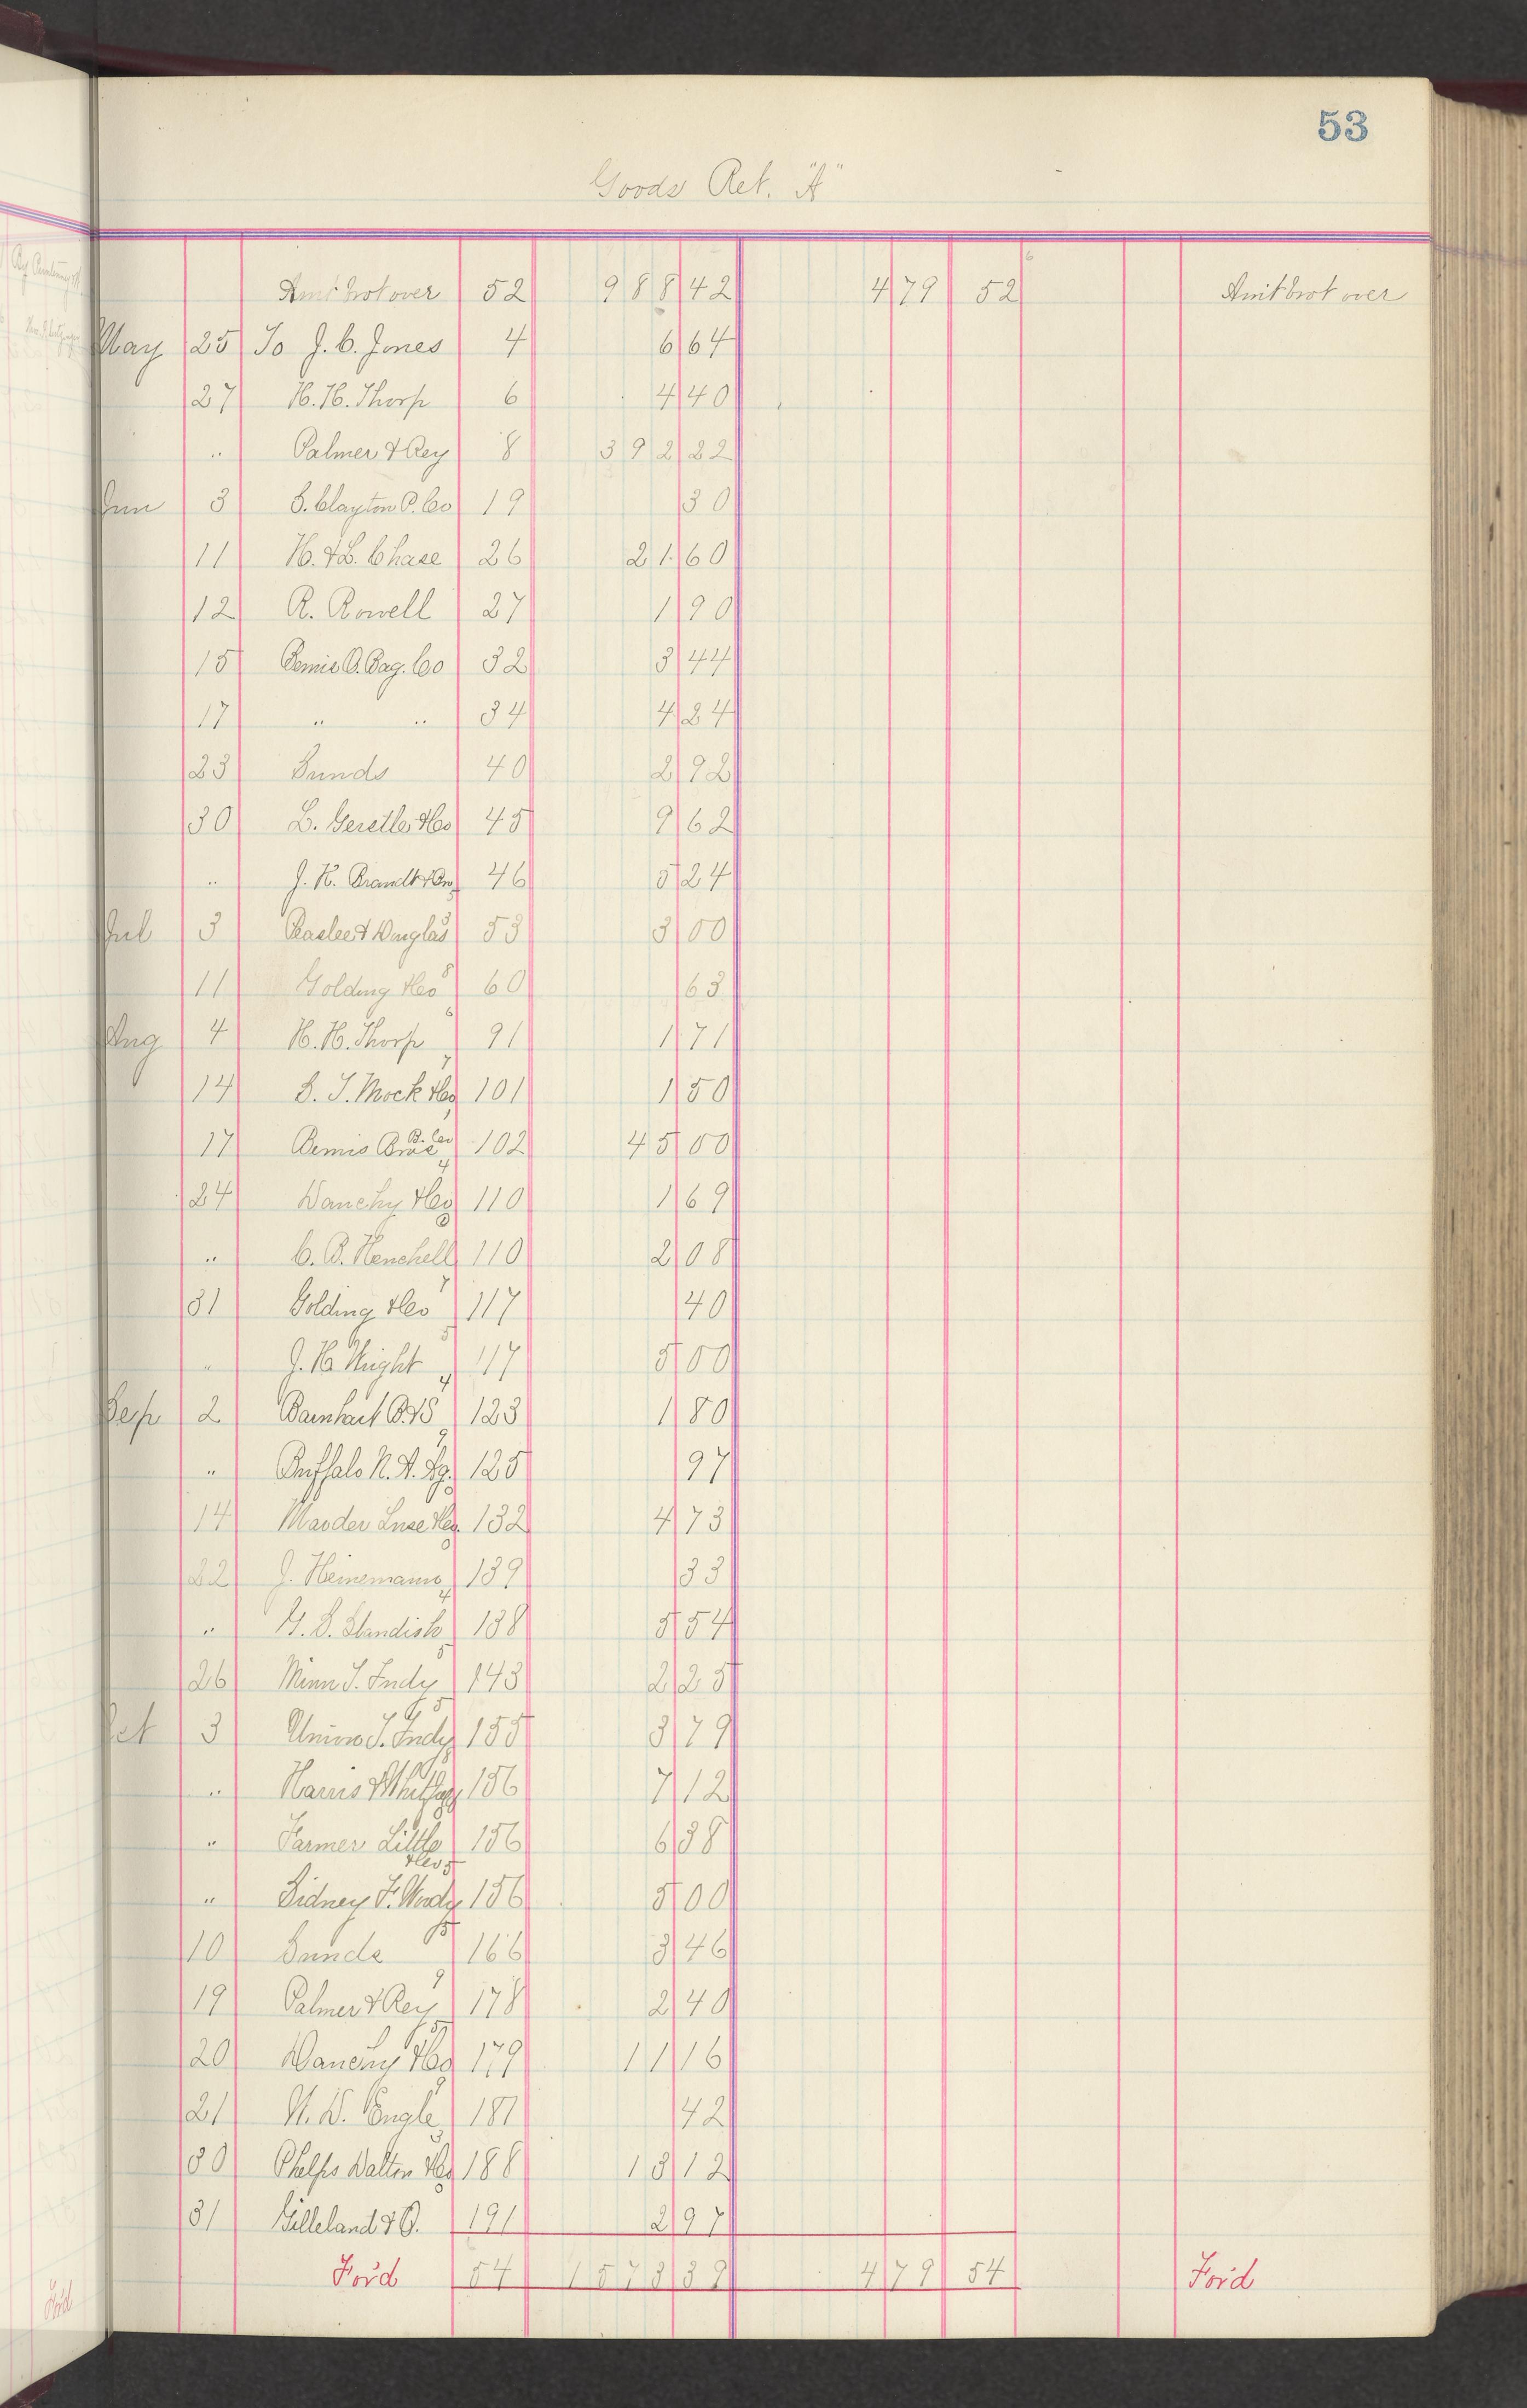 53
Goods Ret. "A"
Amt brot over 52 988 42 479 52 Amt brot over
May 25 To J. C. Jones 4 6 64
27 H. H. Thorp 6 4 40
" Palmer & Rey 8 392 22
Jun 3 S. Clayton P. Co 19 30
11 H. & L. Chase 26 21 60
12 R. Rowell 27 1 90
15 Bemis B. Bag. Co 32 3 44
17 " " 34 4 24
23 Sunds 40 2 92
30 L. & Co 45 9 62
" J. H. 46 5 24
Jul 3 & Douglas 53 3 00
11 Golding & Co 60 63
Aug 4 H. H. Thorp 91 1 71
14 S. T. Mock & Co 101 1 50
17 Bemis Bros B. Co 102 45 00
24 & Co 110 1 69
" C. B. Henchell 110 2 08
31 Golding & Co 117 40
" J. H. 117 5 00
Sep 2 Barnhart B. & S 123 1 80
" Buffalo 125 97
14 Marder Luse & Co. 132 4 73
22 J. Heinemann 139 33
" H. S. Standish 138 5 54
26 Minn T. Fndy 143 2 25
Oct 3 Union T. Fndy 155 3 79
" Harris 156 7 12
" Farmer Little & Co 156 6 38
" Sidney F. 156 5 00
10 Sunds 166 3 46
19 Palmer & Rey 178 2 40
20 & Co 179 11 16
21 Engle 181 42
30 Phelps Dalton & Co 188 13 12
31 Gilleland & B. 191 2 97
For'd 54 1573 39 479 54 For'd
For'd